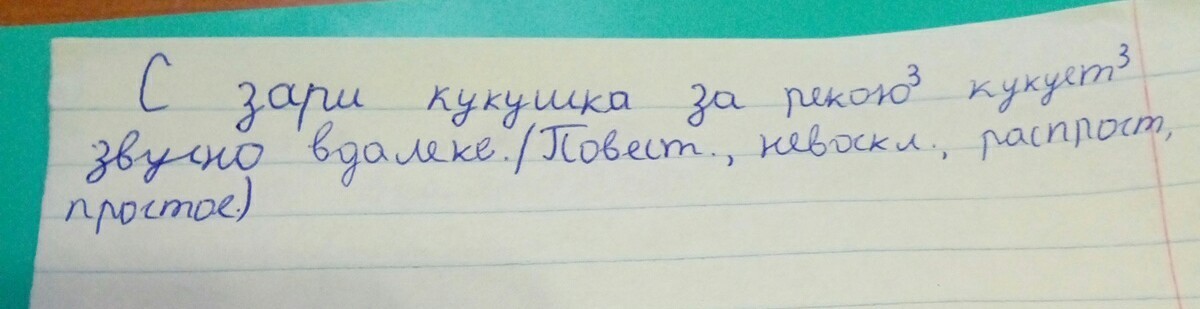 С зари кукушка за рекою³ кукует³
звучно вдалеке. (Повест., невоскл., распрост,
простое.)